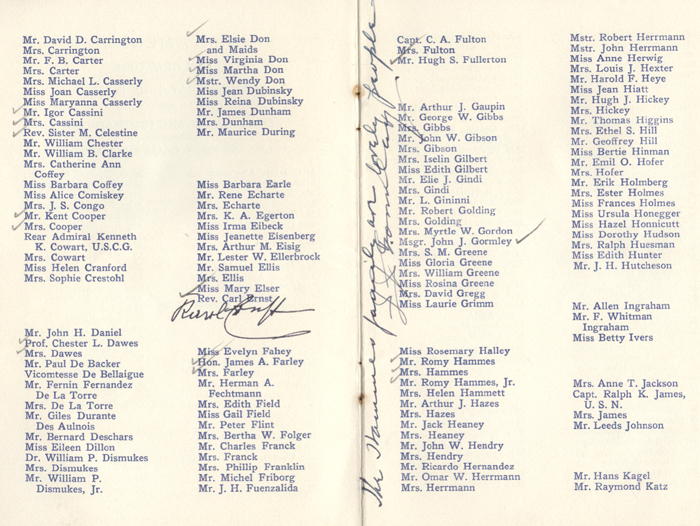 Mr. David D. Carrington
Mrs. Carrington
Mr. F. B. Carter
Mrs. Carter
Mrs. Michael L. Casserly
Miss Joan Casserly
Miss Maryanna Casserly
Mr. Igor Cassini
Mrs. Cassini
Rev. Sister M. Celestine
Mr. William Chester
Mr. William B. Clarke
Mrs. Catherine Ann
Coffey
Miss Barbara Coffey
Miss Alice Comiskey
Mrs. J. S. Congo
Mr. Kent Cooper
Mrs. Cooper
Rear Admiral Kenneth
K. Cowart, U.S.C.G.
Mrs. Cowart
Miss Helen Cranford
Mrs. Sophie Crestohl
Mr. John H. Daniel
Prof. Chester L. Dawes
Mrs. Dawes
Mr. Paul De Backer
Vicomtesse De Bellaigue
Mr. Fernin Fernandez
De La Torre
Mrs. De La Torre
Mr. Giles Durante
Des Aulnois
Mr. Bernard Deschars
Miss Eileen Dillon
Dr. William P. Dismukes
Mrs. Dismukes
Mr. William P.
Dismukes, Jr.
Mrs. Elsie Don
and Maids
Miss Virginia Don
Miss Martha Don
Mstr. Wendy Don
Miss Jean Dubinsky
Miss Reina Dubinsky
Mr. James Dunham
Mrs. Dunham
Mr. Maurice During
Miss Barbara Earle
Mr. Rene Echarte
Mrs. Echarte
Mrs. K. A. Egerton
Miss Irma Eibeck
Miss Jeanette Eisenberg
Mrs. Arthur M. Eisig
Mr. Lester W. Ellerbrock
Mr. Samuel Ellis
Mrs. Ellis
Miss Mary Elser
Rev. Carl Ernst
Miss Evelyn Fahey
Hon. James A. Farley
Mrs. Farley
Mr. Herman A.
Fechtmann
Mrs. Edith Field
Miss Gail Field
Mr. Peter Flint
Mrs. Bertha W. Folger
Mr. Charles Franck
Mrs. Franck
Mrs. Phillip Franklin
Mr. Michel Friborg
Mr. J. H. Fuenzalida
The Hammes family are lovely people
Capt. C. A. Fulton
Mrs. Fulton
Mr. Hugh S. Fullerton
Mr. Arthur J. Gaupin
Mr. George W. Gibbs
Mrs. Gibbs
Mr. John W. Gibson
Mrs. Gibson
Mrs. Iselin Gilbert
Miss Edith Gilbert
Mr. Elie J. Gindi
Mrs. Gindi
Mr. L. Gininni
Mr. Robert Golding
Mrs. Golding
Mrs. Myrtle W. Gordon
Msgr. John J. Gormley
Mrs. S. M. Greene
Miss Gloria Greene
Mrs. William Greene
Miss Rosina Greene
Mrs. David Gregg
Miss Laurie Grimm
Miss Rosemary Halley
Mr. Romy Hammes
Mrs. Hammes
Mr. Romy Hammes, Jr.
Mrs. Helen Hammett
Mr. Arthur J. Hazes
Mrs. Hazes
Mr. Jack Heaney
Mrs. Heaney
Mr. John W. Hendry
Mrs. Hendry
Mr. Ricardo Hernandez
Mr. Omar W. Herrmann
Mrs. Herrmann
Mstr. Robert Herrmann
Mstr. John Herrmann
Miss Anne Herwig
Mrs. Louis J. Hexter
Mr. Harold F. Heye
Miss Jean Hiatt
Mr. Hugh J. Hickey
Mrs. Hickey
Mr. Thomas Higgins
Mrs. Ethel S. Hill
Mr. Geoffrey Hill
Miss Bertie Hinman
Mr. Emil O. Hofer
Mrs. Hofer
Mr. Erik Holmberg
Mrs. Ester Holmes
Miss Frances Holmes
Miss Ursula Honegger
Miss Hazel Honnicutt
Miss Dorothy Hudson
Mrs. Ralph Huesman
Miss Edith Hunter
Mr. J. H. Hutcheson
Mr. Allen Ingraham
Mr. F. Whitman
Ingraham
Miss Betty Ivers
Mrs. Anne T. Jackson
Capt. Ralph K. James,
U. S. N.
Mrs. James
Mr. Leeds Johnson
Mr. Hans Kagel
Mr. Raymond Katz